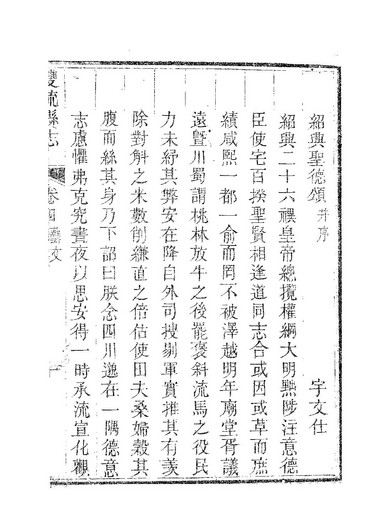 紹興聖德頌并序
宇文仕
紹興二十六禩皇帝總攬權綱大明黜陟注意德
臣使宅百揆聖賢相逢道同志合或因或革而庶
績咸熙一都一俞而罔不被澤越明年廟堂胥議
遠暨川蜀謂桃林放牛之後罷褒斜流馬之役民
力未紓其弊安在降自外司搜剔軍實推其有羨
除對斛之米數削縑直之倍估使田夫桑婦穀其
腹而絲其身乃下詔曰朕念四川邈在一隅德意
志慮懼弗克究晝夜以思安得一時承流宣化觀
雙流縣志
卷四藝文